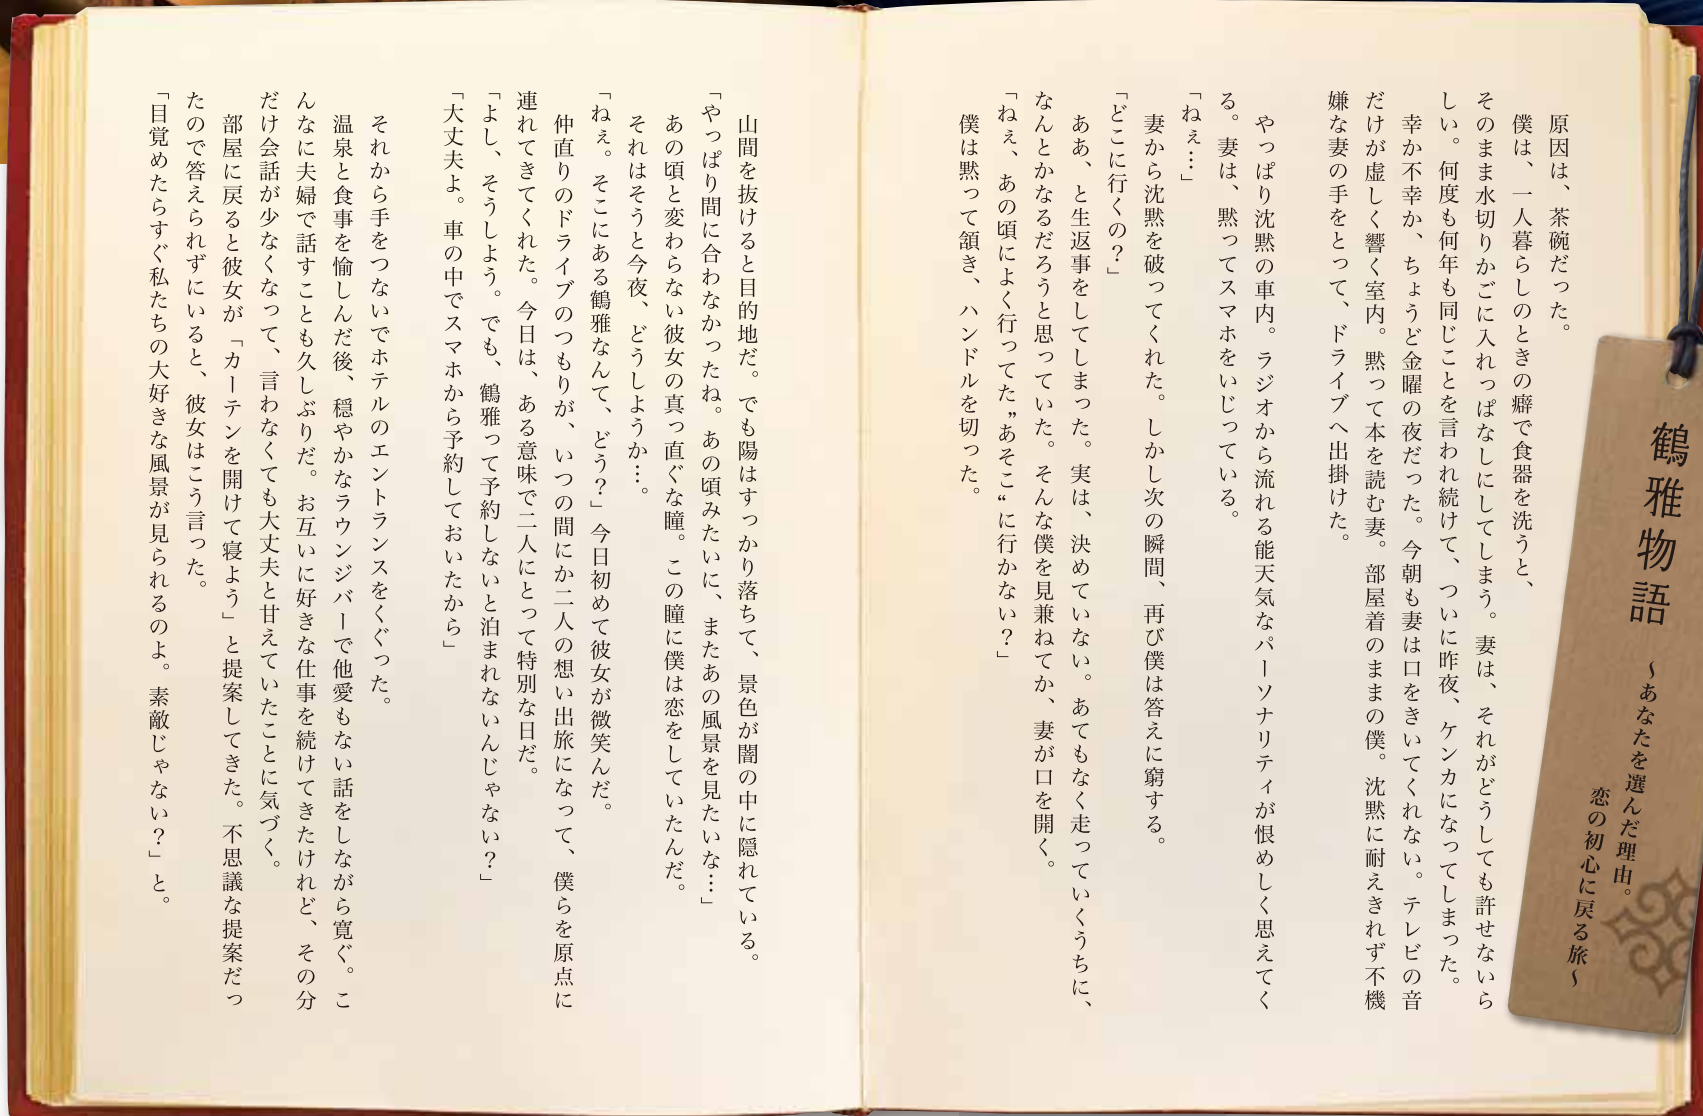 鶴雅物語
～あなたを選んだ理由。
恋の初心に戻る旅～
原因は、茶碗だった。
僕は、一人暮らしのときの癖で食器を洗うと、
そのまま水切りかごに入れっぱなしにしてしまう。妻は、それがどうしても許せないら
しい。何度も何年も同じことを言われ続けて、ついに昨夜、ケンカになってしまった。
幸か不幸か、ちょうど金曜の夜だった。今朝も妻は口をきいてくれない。テレビの音
だけが虚しく響く室内。黙って本を読む妻。部屋着のままの僕。沈黙に耐えきれず不機
嫌な妻の手をとって、ドライブへ出掛けた。
やっぱり沈黙の車内。ラジオから流れる能天気なパーソナリティが恨めしく思えてく
る。妻は、黙ってスマホをいじっている。
「ねぇ…」
妻から沈黙を破ってくれた。しかし次の瞬間、再び僕は答えに窮する。
「どこに行くの？」
ああ、と生返事をしてしまった。実は、決めていない。あてもなく走っていくうちに、
なんとかなるだろうと思っていた。そんな僕を見兼ねてか、妻が口を開く。
「ねぇ、あの頃によく行ってた”あそこ“に行かない？」
僕は黙って頷き、ハンドルを切った。
山間を抜けると目的地だ。でも陽はすっかり落ちて、景色が闇の中に隠れている。
「やっぱり間に合わなかったね。あの頃みたいに、またあの風景を見たいな…」
あの頃と変わらない彼女の真っ直ぐな瞳。この瞳に僕は恋をしていたんだ。
それはそうと今夜、どうしようか…。
「ねぇ。そこにある鶴雅なんて、どう？」今日初めて彼女が微笑んだ。
仲直りのドライブのつもりが、いつの間にか二人の想い出旅になって、僕らを原点に
連れてきてくれた。今日は、ある意味で二人にとって特別な日だ。
「よし、そうしよう。でも、鶴雅って予約しないと泊まれないんじゃない？」
「大丈夫よ。車の中でスマホから予約しておいたから」
それから手をつないでホテルのエントランスをくぐった。
温泉と食事を愉しんだ後、穏やかなラウンジバーで他愛もない話をしながら寛ぐ。こ
んなに夫婦で話すことも久しぶりだ。お互いに好きな仕事を続けてきたけれど、その分
だけ会話が少なくなって、言わなくても大丈夫と甘えていたことに気づく。
部屋に戻ると彼女が「カーテンを開けて寝よう」と提案してきた。不思議な提案だっ
たので答えられずにいると、彼女はこう言った。
「目覚めたらすぐ私たちの大好きな風景が見られるのよ。素敵じゃない？」と。